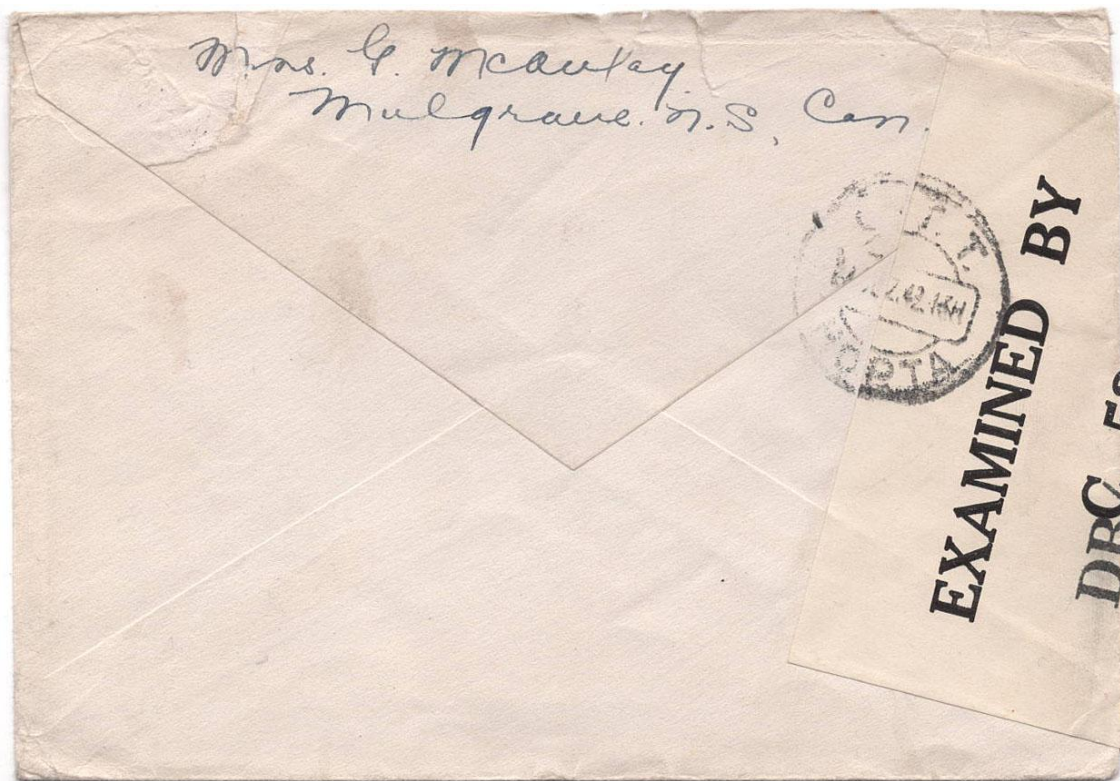 Mrs. G. McAulay
Mulgrave. N.S, Can.
C.T.T.
HORTA
EXAMINED BY
DBC